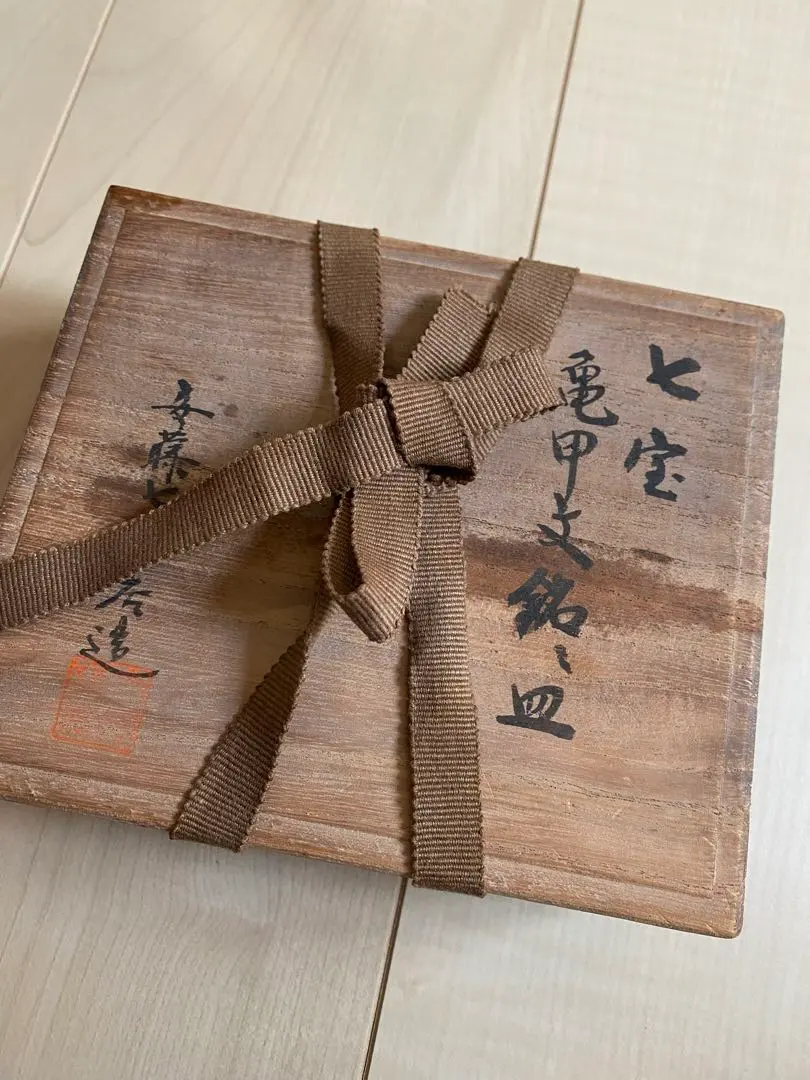 七宝
亀甲文銘々皿
安藤七
造